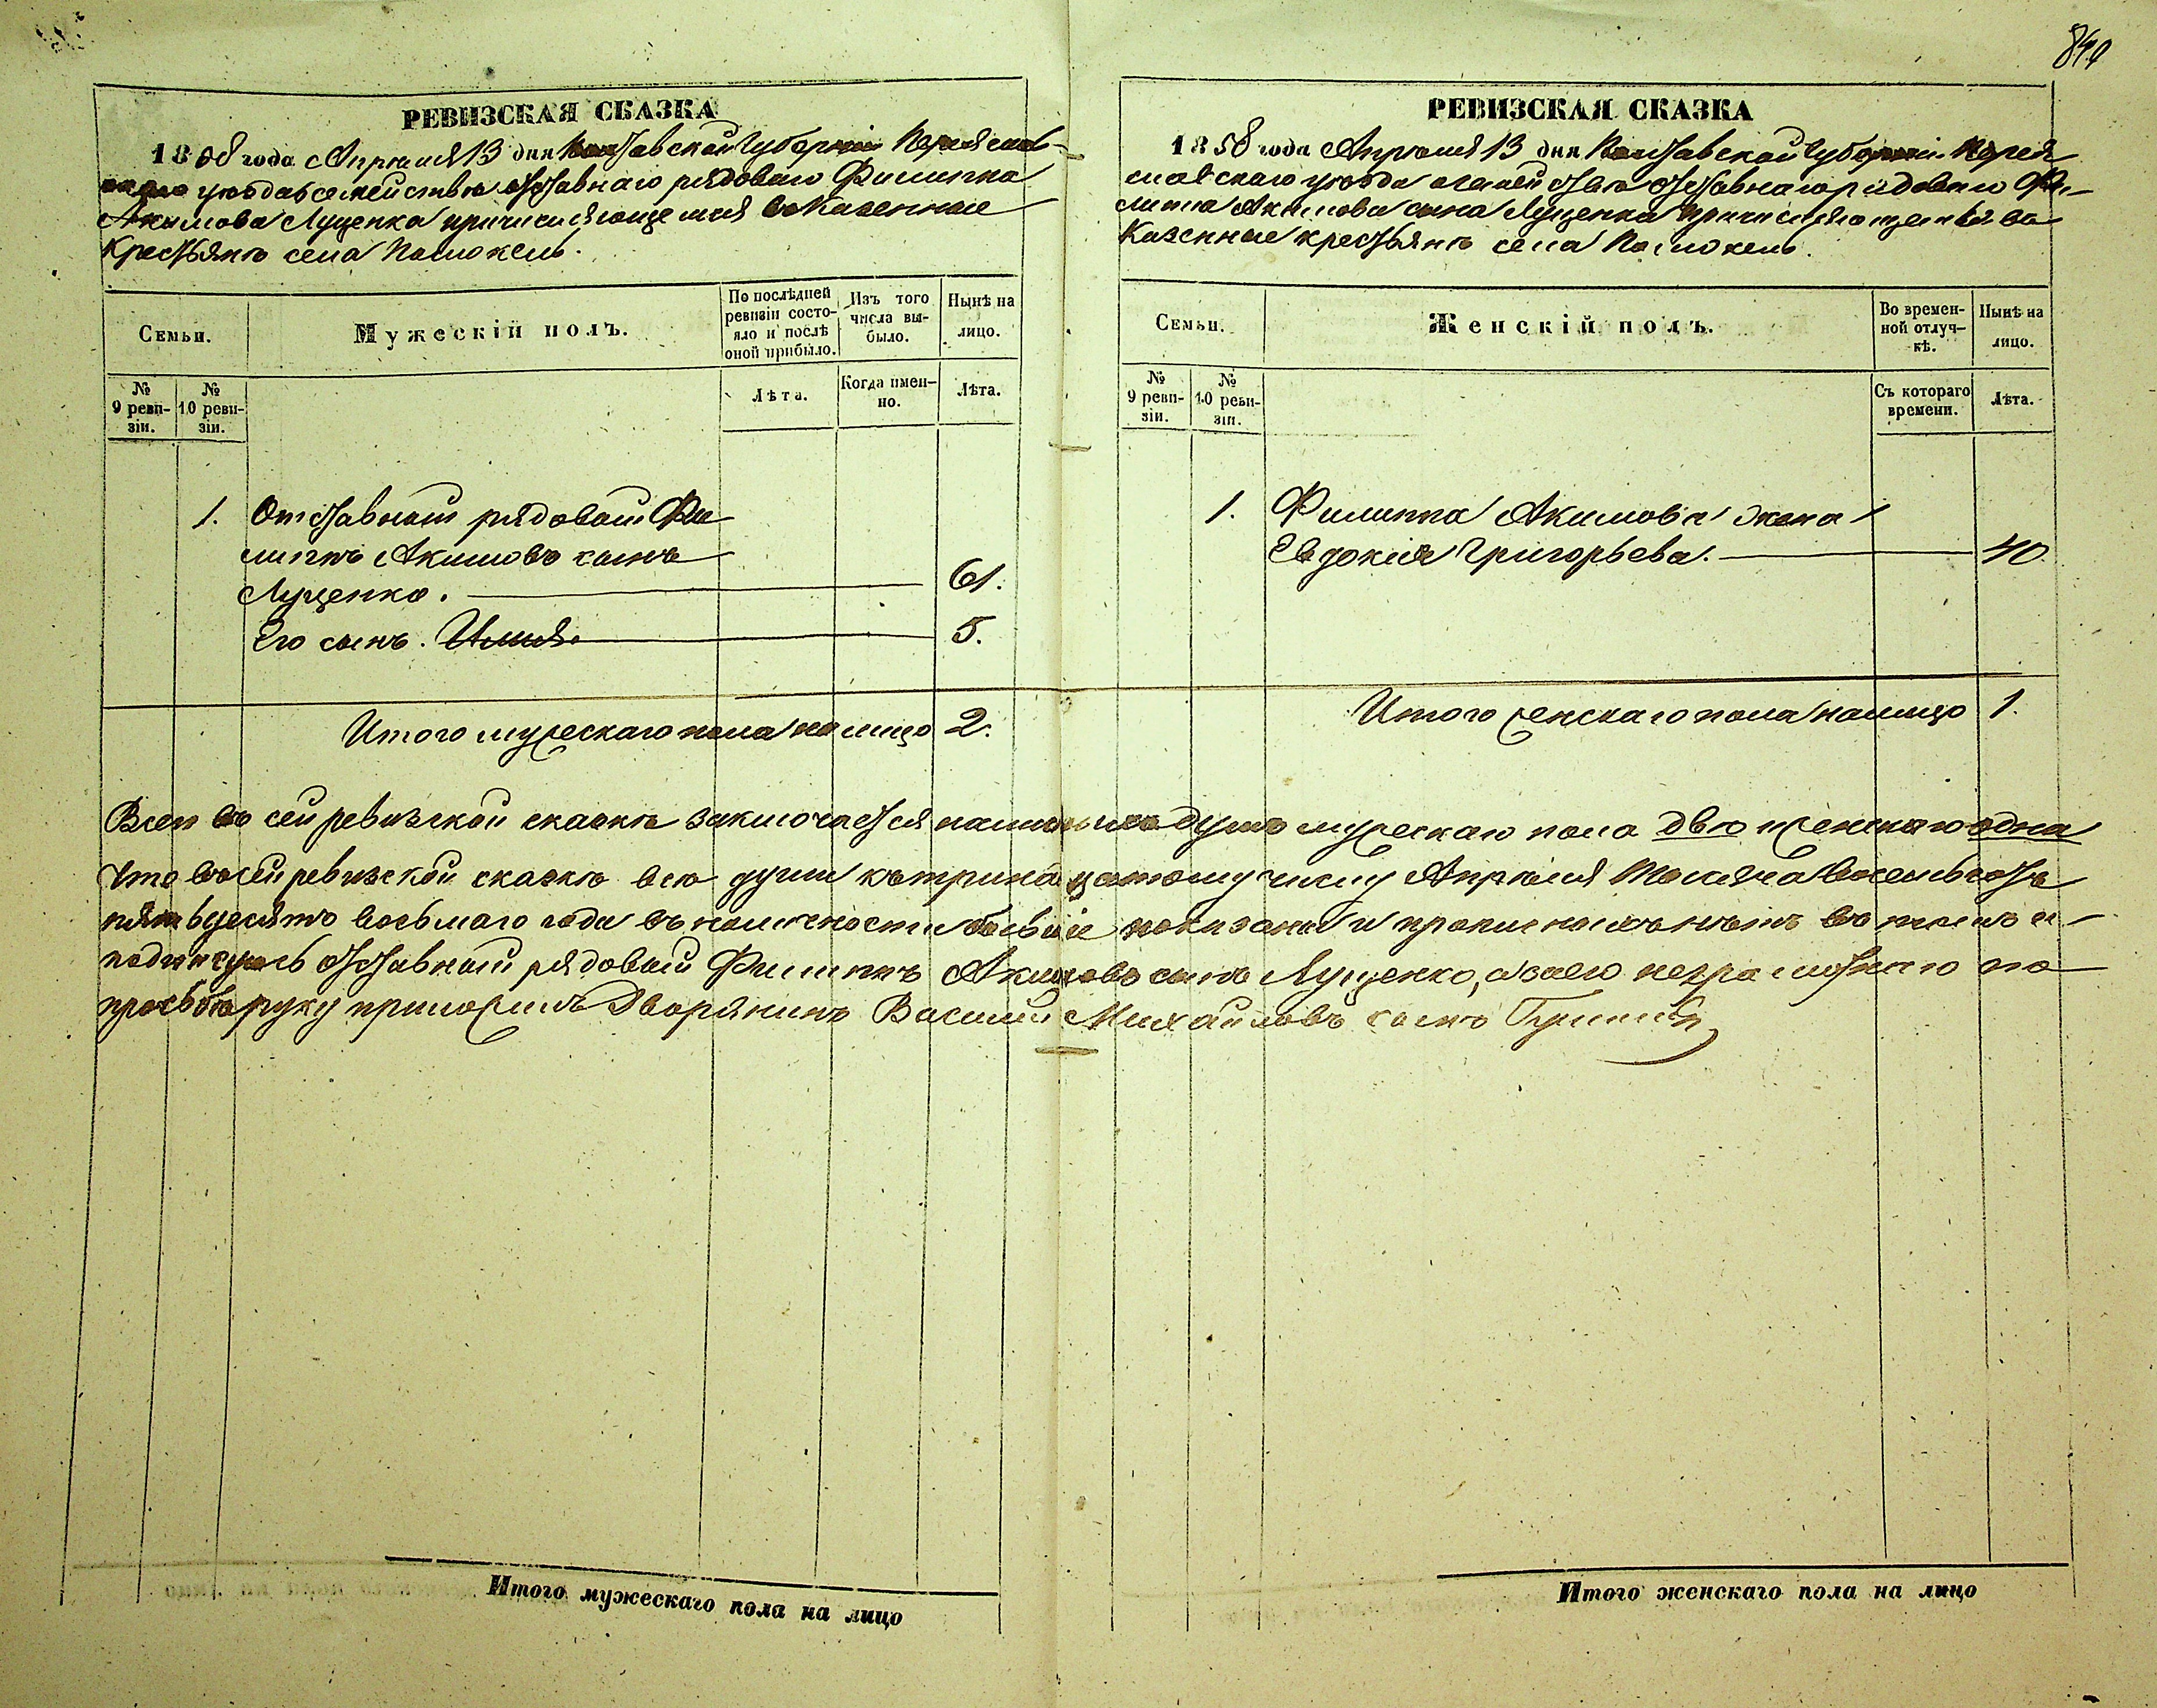 844
РЕВИЗСКАЯ СКАЗКА
1858 года Апреля 13 дня Полтавской Губерніи Переяслав-
скаго уезда о семействе отставнаго рядоваго Филиппа
Акимова Луценка причисляющемся въ Казенные
Крестьяне села Помокель.
Семьи.
Мужескій полъ.
По послѣдней ревизіи состояло и послѣ оной прибыло.
Изъ того числа выбыло.
Нынѣ на лицо.
№ 9 ревизіи.
№ 10 ревизіи.
Лѣта.
Когда именно.
Лѣта.
1. Отставный рядовый Фи
липпъ Акимовъ сынъ
Луценко. 61.
Его сынъ. Илья. 5.
Итого мужескаго пола на лицо 2.
РЕВИЗСКАЯ СКАЗКА
1858 года Апреля 13 дня Полтавской Губерніи Перея
славскаго уезда о семействе отставнаго рядоваго Фи-
липпа Акимова сына Луценка причисляющемся въ
Казенные крестьяне села Помокель.
Семьи.
Женскій полъ.
Во временной отлучкѣ.
Нынѣ на лицо.
№ 9 ревизіи.
№ 10 ревизіи.
Съ котораго времени.
Лѣта.
1. Филиппа Акимова жена
Евдокія Григорьева. 40
Итого женскаго пола налицо 1.
Всего въ сей ревизской сказке заключается наличныхъ душъ мужескаго пола две и женскаго одна
Что въ сей ревизской сказке все души къ тринадцатому числу Апреля Месяца восемьсотъ
пятьдесятъ восьмаго года въ наличности бывшіе показаны и прописныхъ нетъ въ томъ и
подписуюсь отставный рядовый Филиппъ Акимовъ сынъ Луценко, а за его неграмотнаго по
просьбе руку приложилъ Дворянинъ Василій Михайловъ сынъ
Итого мужескаго пола на лицо
Итого женскаго пола на лицо